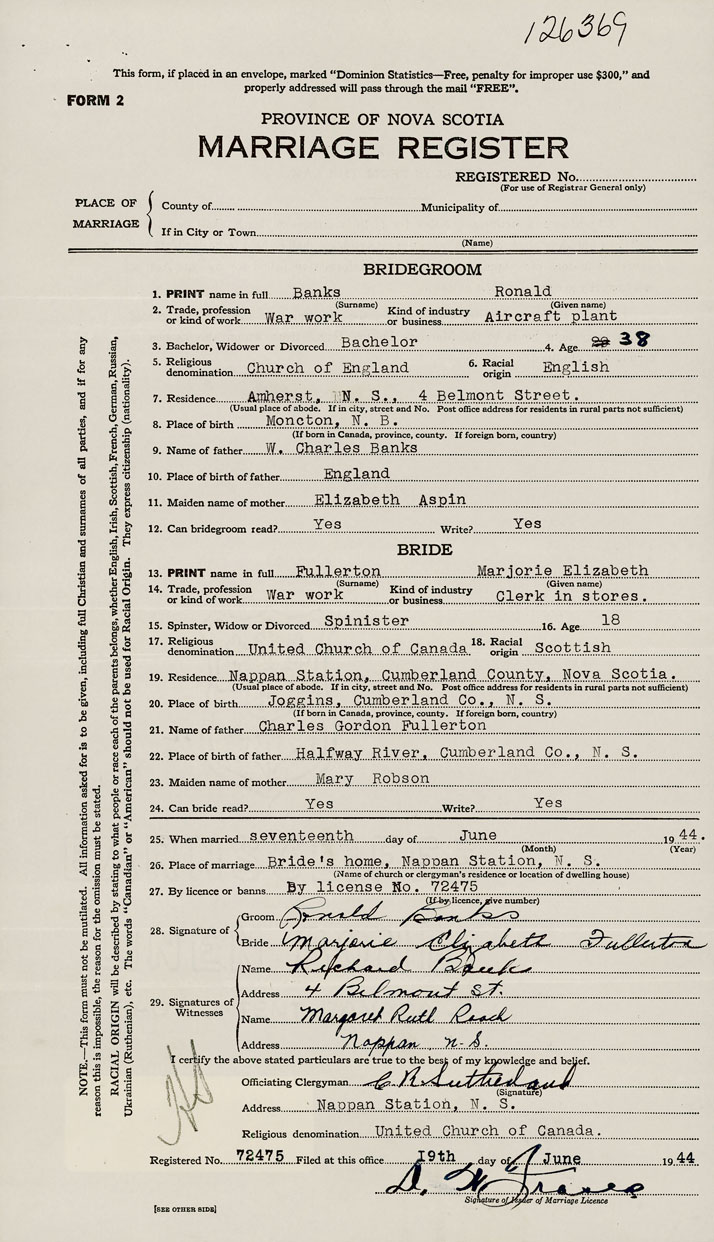 126369
This form, if placed in an envelope, marked "Dominion Statistics—Free, penalty for improper use $300," and
properly addressed will pass through the mail "FREE".
FORM 2
PROVINCE OF NOVA SCOTIA
MARRIAGE REGISTER
REGISTERED No.
(For use of Registrar General only)
PLACE OF MARRIAGE
County of Municipality of
If in City or Town
(Name)
BRIDEGROOM
1. PRINT name in full Banks Ronald
(Surname) (Given name)
2. Trade, profession or kind of work War work Kind of industry or business Aircraft plant
3. Bachelor, Widower or Divorced Bachelor 4. Age 38
5. Religious denomination Church of England 6. Racial origin English
7. Residence Amherst, N. S., 4 Belmont Street.
(Usual place of abode. If in city, street and No. Post office address for residents in rural parts not sufficient)
8. Place of birth Moncton, N. B.
(If born in Canada, province, county. If foreign born, country)
9. Name of father W. Charles Banks
10. Place of birth of father England
11. Maiden name of mother Elizabeth Aspin
12. Can bridegroom read? Yes Write? Yes
BRIDE
13. PRINT name in full Fullerton Marjorie Elizabeth
(Surname) (Given name)
14. Trade, profession or kind of work War work Kind of industry or business Clerk in stores.
15. Spinster, Widow or Divorced Spinister 16. Age 18
17. Religious denomination United Church of Canada 18. Racial origin Scottish
19. Residence Nappan Station, Cumberland County, Nova Scotia.
(Usual place of abode. If in city, street and No. Post office address for residents in rural parts not sufficient)
20. Place of birth Joggins, Cumberland Co., N. S.
(If born in Canada, province, county. If foreign born, country)
21. Name of father Charles Gordon Fullerton
22. Place of birth of father Halfway River, Cumberland Co., N. S.
23. Maiden name of mother Mary Robson
24. Can bride read? Yes Write? Yes
25. When married seventeenth day of June 1944.
(Month) (Year)
26. Place of marriage Bride's home, Nappan Station, N. S.
(Name of church or clergyman's residence or location of dwelling house)
27. By licence or banns By license No. 72475
(If by licence, give number)
28. Signature of
Groom Ronald Banks
Bride Marjorie Elizabeth Fullerton
29. Signatures of Witnesses
Name Richard
Address 4 Belmont St.
Name Margaret Ruth
Address Nappan N.S.
I certify the above stated particulars are true to the best of my knowledge and belief.
Officiating Clergyman C R Sutherland
(Signature)
Address Nappan Station, N. S.
Religious denomination United Church of Canada.
Registered No. 72475 Filed at this office 19th day of June 1944
D. W.
Signature of Issuer of Marriage Licence
[SEE OTHER SIDE]
NOTE.—This form must not be mutilated. All information asked for is to be given, including full Christian and surnames of all parties, and if for any
reason this is impossible, the reason for the omission must be stated.
RACIAL ORIGIN will be described by stating to what people or race each of the parents belongs, whether English, Irish, Scottish, French, German, Russian,
Ukrainian (Ruthenian), etc. The words "Canadian" or "American" should not be used for Racial Origin. They express citizenship (nationality).